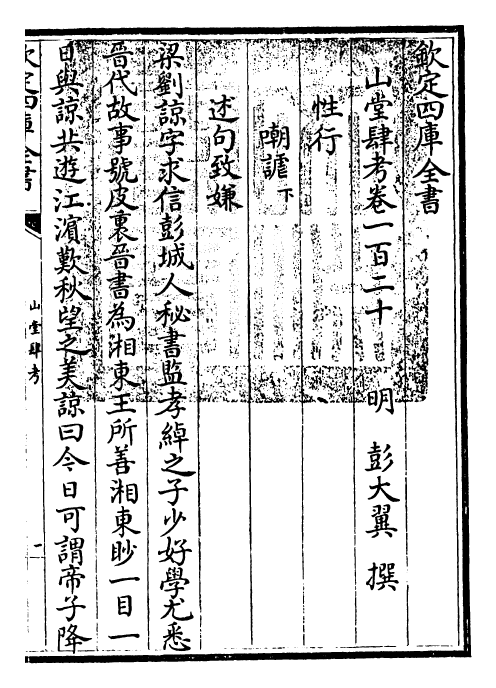 欽定四庫全書
山堂肆考卷一百二十　明　彭大翼　撰
性行
嘲謔下
述句致嫌
梁劉諒字求信彭城人秘書監孝綽之子少好學尤悉
晉代故事號皮裏晉書為湘東王所善湘東眇一目一
日與諒共遊江濵歎秋望之美諒曰今日可謂帝子降
欽定四庫全書
山堂肆考
一